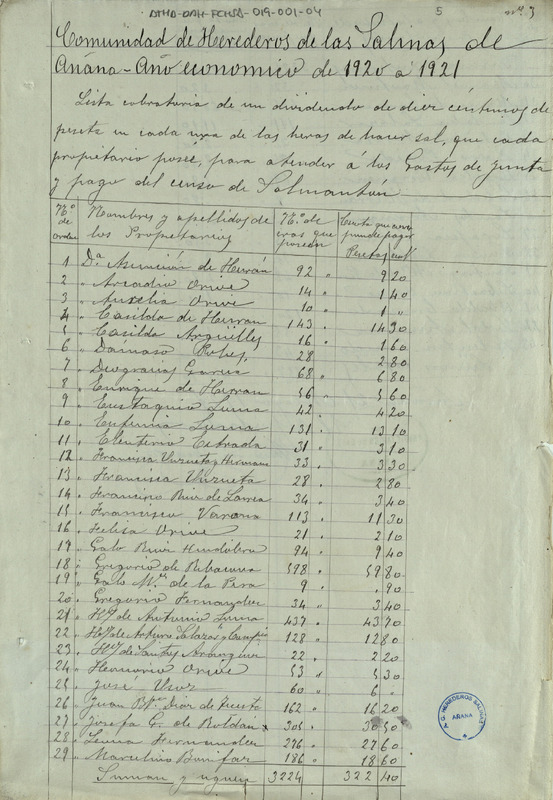 ATHA-DAH-FCHSA-019-001-04
5
nº 3
Comunidad de Herederos de las Salinas de
Añana - Año economico de 1920 a 1921
Lista cobratoria de un dividendo de diez céntimos de
peseta en cada una de las heras de hacer sal, que cada
propietario posée, para atender a los Gastos de Junta
y pago del censo de Salmantón
Nº de orden Nombres y apellidos de los Propietarios Nº de eras que poseen Cuota que corresponde pagar Pesetas cent
1 Dª Asunción de Herrán 92 " 9 20
2 " Arcadio Orive 14 " 1 40
3 " Aurelia Orive 10 " 1 "
4 " Casilda de Herran 143 " 14 30
5 " Casilda Argüelles 16 " 1 60
6 " Dámaso 28 2 80
7 " Deogracias Garcia 68 " 6 80
8 " Enrique de Herran 56 " 5 60
9 " Eustaquio Luna 42 " 4 20
10 " Eufemia Luna 131 " 13 10
11 " Eleuterio Estrada 31 " 3 10
12 " Francisca Unzueta y Hermano 33 " 3 30
13 " Francisca Unzueta 28 " 2 80
14 " Francisco Ruiz de Loirea 34 " 3 40
15 " Francisco Varona 113 " 11 30
16 " Felisa Orive 21 " 2 10
17 " Galo Ruiz 94 " 9 40
18 " Gregorio de Ribacoba 598 " 59 80
19 " Galo Mª de la Pera 9 " " 90
20 " Gregorio Fernandez 34 " 3 40
21 " Hº de Antonio Luna 437 " 43 70
22 " Hº de Arturo Salazar y 128 " 12 80
23 " Hº de Santos 22 " 2 20
24 " Honorio Orive 53 " 5 30
25 " José Usoz 60 " 6 "
26 " Juan Bta Diaz de Tuesta 162 " 16 20
27 " Josefa G. de Roldán 305 " 30 50
28 " Luisa Hernandez 276 " 27 60
29 " Marcelino Bonifaz 186 " 18 60
Suman y siguen 3224 322 40
A. G. HEREDEROS SALINAS
AÑANA